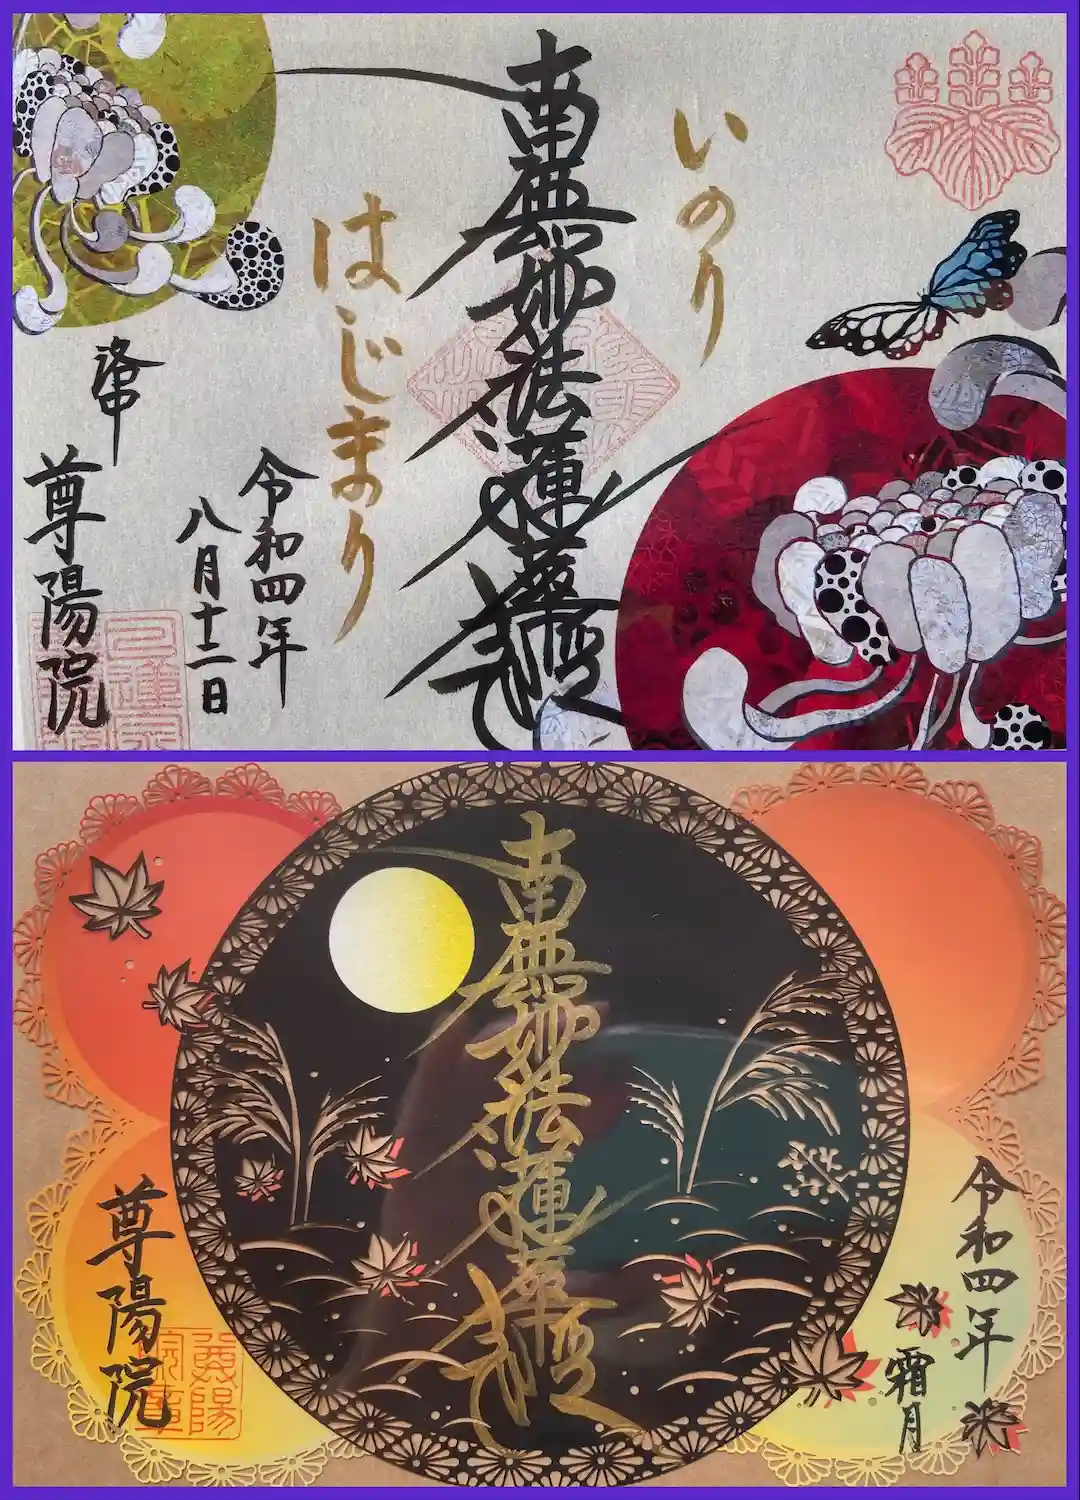 いのり
南無妙法蓮華経
はじまり
令和四年
八月十二日
尊陽院
南無妙法蓮華経
令和四年
霜月
尊陽院
尊陽